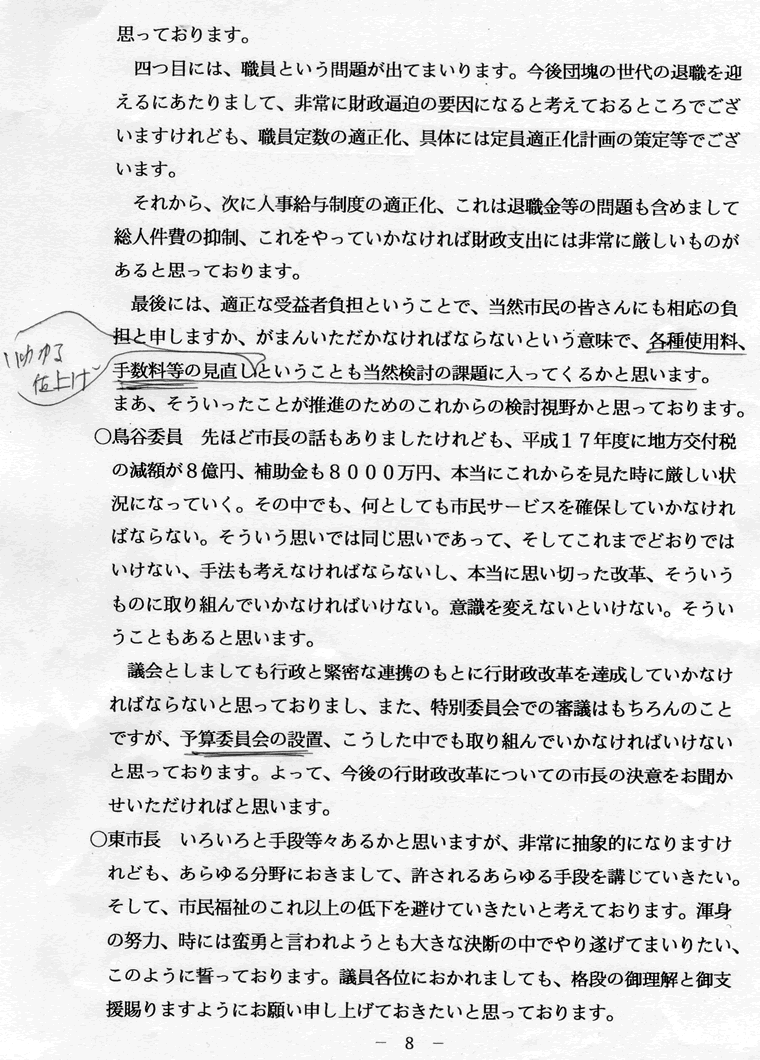 思っております。
四つ目には、職員という問題が出てまいります。今後団塊の世代の退職を迎
えるにあたりまして、非常に財政逼迫の要因になると考えておるところでござ
いますけれども、職員定数の適正化、具体には定員適正化計画の策定等でござ
います。
それから、次に人事給与制度の適正化、これは退職金等の問題も含めまして
総人件費の抑制、これをやっていかなければ財政支出には非常に厳しいものが
あると思っております。
最後には、適正な受益者負担ということで、当然市民の皆さんにも相応の負
担と申しますか、がまんいただかなければならないという意味で、各種使用料、
手数料等の見直しということも当然検討の課題に入ってくるかと思います。
まあ、そういったことが推進のためのこれからの検討視野かと思っております。
いわゆる
値上げ
○鳥谷委員 先ほど市長の話もありましたけれども、平成１７年度に地方交付税
の減額が８億円、補助金も８０００万円、本当にこれからを見た時に厳しい状
況になっていく。その中でも、何としても市民サービスを確保していかなけれ
ばならない。そういう思いでは同じ思いであって、そしてこれまでどおりでは
いけない、手法も考えなければならないし、本当に思い切った改革、そういう
ものに取り組んでいかなければいけない。意識を変えないといけない。そうい
うこともあると思います。
議会としましても行政と緊密な連携のもとに行財政改革を達成していかなけ
ればならないと思っておりまし、また、特別委員会での審議はもちろんのこと
ですが、予算委員会の設置、こうした中でも取り組んでいかなければいけない
と思っております。よって、今後の行財政改革についての市長の決意をお聞か
せいただければと思います。
○東市長 いろいろと手段等々あるかと思いますが、非常に抽象的になりますけ
れども、あらゆる分野におきまして、許されるあらゆる手段を講じていきたい。
そして、市民福祉のこれ以上の低下を避けていきたいと考えております。渾身
の努力、時には蛮勇と言われようとも大きな決断の中でやり遂げてまいりたい、
このように誓っております。議員各位におかれましても、格段の御理解と御支
援賜りますようにお願い申し上げておきたいと思っております。
－ 8 －